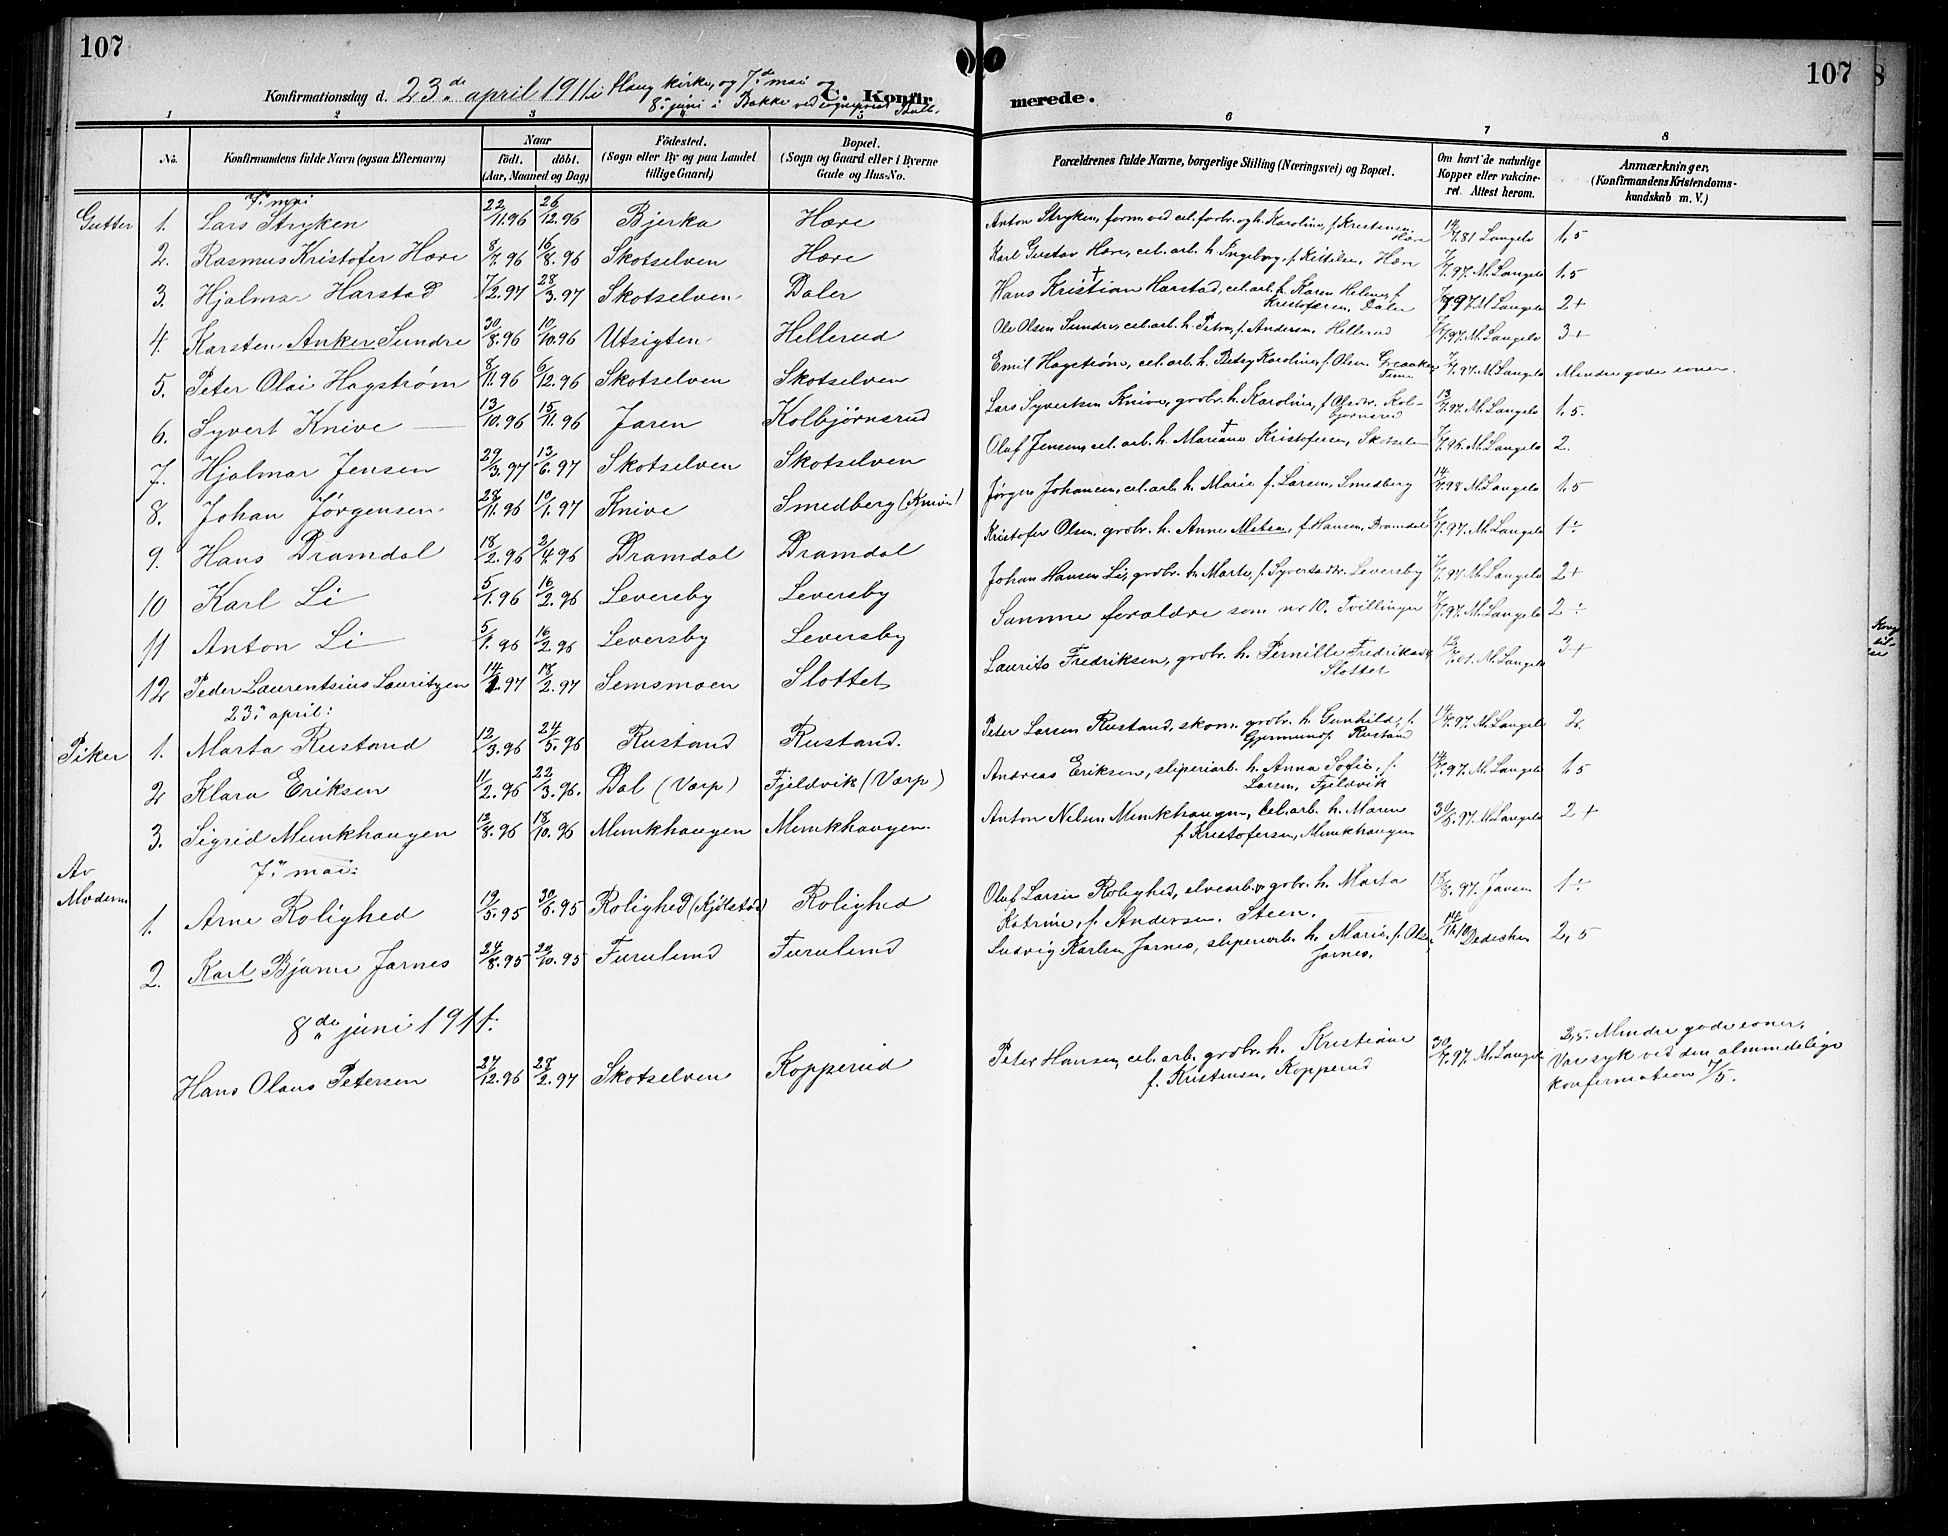 107
107
Konfirmationsdag d. 23de april 1911 i Haug kirke, og 7de mai og
8de juni i Bakke ved sogneprest
C. Konfir merede.
1 2 3 5 6 7 8
No. Konfirmandens fulde Navn (ogsaa Efternavn) Naar født. døbt. (Aar, Maaned og Dag) Födested. (Sogn eller By og paa Landet tillige Gaard) Bopæl. (Sogn og Gaard eller i Byerne Gade og Hus-No. Forældrenes fulde Navne, borgerlige Stilling (Næringsvei) og Bopæl. Om havt de naturlige Kopper eller vakcineret. Attest herom. Anmærkninger. (Konfirmandens Kristendomskundskab m. V.)
7. mai
Gutter 1. Lars Stryken 22/11.96 26/12.96 Bjerka Hære Anton Stryken, form. ved cel.fbr. og h. Karoline, f. Kristensen, Hære 14/7.81 Langelo 1,5
2. Rasmus Kristofer Hære 8/7.96 16/8.96 Skotselven Hære Karl Gustav Hære, cel.arb. h. Ingeborg, f. Kittilsen, Hære 7/7.97. M. Langelo 1.5
3. Hjalmar Harstad 7/2.97 28/3.97 Skotselven Daler Hans Kristian Harstad, cel.arb. f. Karen Helene, f. Kristofersen, Daler 7/7.97. M. Langelo 2+
4. Karsten Anker Sundre 30/8.96 10/10.96 Utsigten Hellerud Ole Olsen Sundre, cel.arb. h. Petra, f. Andersen, Hellerud 7/7.97. M. Langelo 3+
5. Peter Olai Hagstrøm 8/11.96 6/12.96 Skotselven Skotselven Emil Hagstrøm, cel.arb. h. Betsy Karoline, f. Olsen. 7/7.97. M. Langelo Mindre gode evner.
6. Syvert Knive 13/10.96 15/11.96 Jaren Kolbjørnsrud Lars Syvertsen Knive, grdbr. h. Karoline, f. Olsdtr. Kolbjørnsrud 13/7.97. M. Langelo 1,5.
7. Hjalmar Jensen 29/3.97 13/6.97 Skotselven Skotselven Olaf Jensen, cel.arb. h. Mariane Kristofersen, 7/7.96 M. Langelo 2.
8. Johan Jørgensen 28/11.96 10/1.97 Knive Smedberg (Knive) Jørgen Johansen, cel.arb. h. Marie f. Larsen, Smedberg 14/7.98 M. Langelo 1,5
9. Hans Dramdal 18/2.96 2/4.96 Dramdal Dramdal Kristofer Olsen, grdbr. h. Anne f. Hansen, Dramdal 7/7.97. M. Langelo 1÷
10 Karl Li 5/1.96 16/2.96 Leversby Leversby Johan Hansen Li, grdbr. h. Marte, f. Syvertsdtr. Leversby 7/7.97 M. Langelo 2+
11 Anton Li 5/1.96 16/2.96 Leversby Leversby Samme forældre som nr 10. Tvillinger 7/7.97. M. Langelo 2÷
12 Peder Laurentsius Lauritzen 14/1.97 18/2.97 Semsmoen Slottet Laurits Fredriksen, grdbr. h. Pernille Fredriksdtr Slottet 13/7.01. M. Langelo 3+
23. april:
Piker 1. Marta Rustand 12/3.96 24/5.96 Rustand Rustand. Peter Larsen Rustand, skom. grdbr. h. Gunhild, f. Gjermundsd. Rustand 14/7.97. M. Langelo 2.
2 Klara Eriksen 11/2.96 22/3.96. Dal (Værp) Fjeldvik (Værp) Andreas Eriksen, sliperiarb. h. Anna Sofie, f. Larsen, Fjeldvik 14/7.97. M. Langelo 1,5
3. Sigrid Munkhaugen 12/8.96 18/10.96 Munkhaugen Munkhaugen. Anton Nilsen Munkhaugen, cel.arb. h. Maren f. Kristofersen, Munkhaugen 30/8.97. M. Langelo 2+
Av Modum 7de mai:
1. Arne Rolighed 19/5.95 30/6.95 Rolighed (Kjølstad) Rolighed Olaf Larsen Rolighed, elvearb. grdbr. h. Marta Katrine, f. Andersen. Steen. 18/8.97. Jansen 1÷
2. Karl Bjarne Jarnes 24/8.95 20/10.95 Furulund Furulund Ludvig Karlsen Jarnes, sliperiarb. h. Marie, f. Olsen, Jarnes. Dedechen 2,5
8de juni 1911:
Hans Olaus Petersen 27/12.96 28/2.97 Skotselven Kopperud Peter Hansen, cel.arb. grdbr. h. Kristiane f. Kristensen, Kopperud 30/7.97. M. Langelo 2,5. Mindre gode evner. Var syk ved den almindelige konfirmation 7/5.